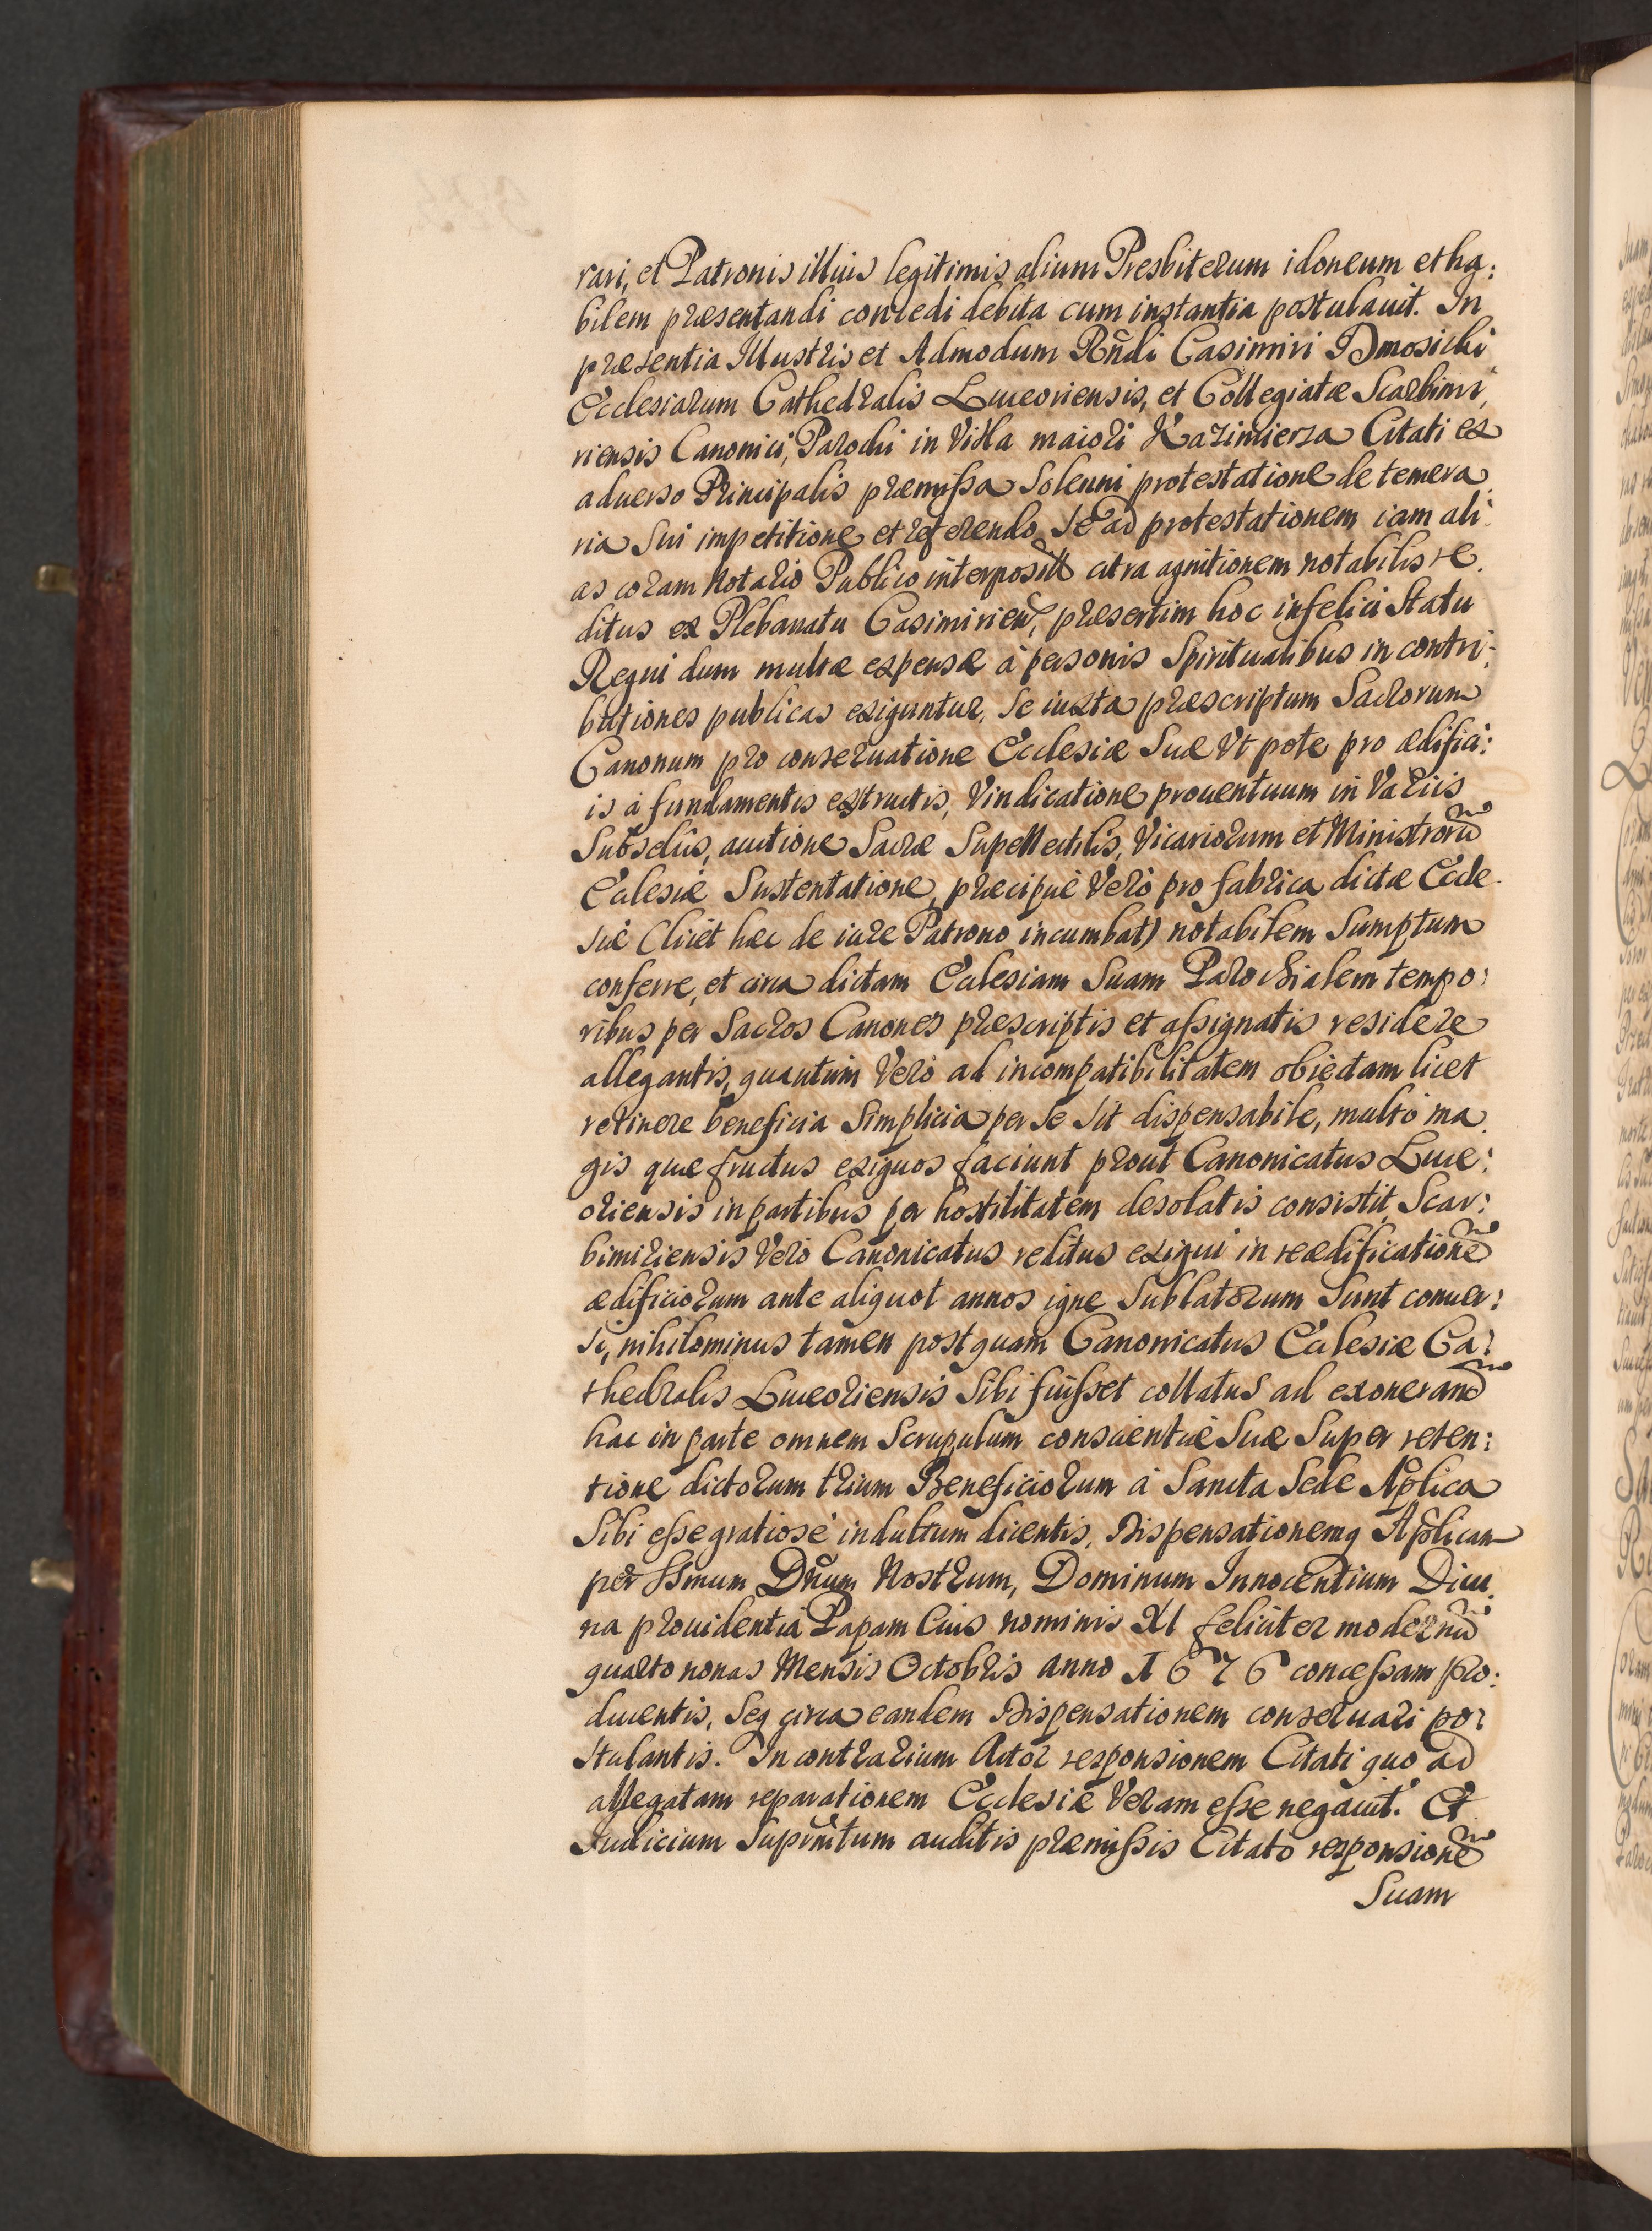 rari, et Patronis illius legitimis alium Presbiterum idoneum et ha:
bilem præsentandi concedi debita cum instantia postulauit. In
præsentia Illustris et Admodum Rñdi Casimiri Dmosicki
Ecclesiarum Cathedralis Luceoriensis, et Collegiatæ Scarbimi,
riensis Canonici, Parochi in Villa maiori Kazimierza Citati ex
aduerso Principalis præmissa Solenni protestatione de temera
ria Sui impetitione et referendo Se ad protestationem iam ali:
as coram Notario Publico citra agnitionem notabilis re.
ditus ex Plebanatu Casimirien, præsertim hoc infelici Statu
Regni dum multæ expensæ à personis Spiritualibus in contri:
butiones publicas exiguntur, Se iuxta præscriptum Sacrorum
Canonum pro conseruatione Ecclesiæ Suæ Vt pote pro ædifici:
is à fundamentis extructis, Vindicatione prouentuum in Variis
Subselijs, auctione Sacræ Supellectilis, Vicariorum et Ministrorũ
Eclesiæ Sustentatione, præcipuè Verò pro fabrica dictæ Eccle.
siæ (licet hæc de iure Patrono incumbat) notabilem Sumptum
conferre, et circa dictam Eclesiam Suam Parochialem tempo:
ribus per Sacros Canones præscriptis et assignatis residere
allegantis, quantum Verò ad incompatibilitatem obiectam licet
retinere beneficia Simplicia per Se Sit dispensabile, multò ma
gis quæ fructus exiguos faciunt prout Canonicatus Luce:
oriensis in partibus per hostilitatem desolatis consistit, Scar:
bimiriensis Verò Canonicatus reditus exigui in reædificationẽ
ædificiorum ante aliquot annos igne Sublatorum Sunt conuer:
Si, nihilominus tamen postquam Canonicatus Eclesiæ Ca:
thedralis Luceoriensis Sibi fuisset collatus ad exonerand
hac in parte omnem Scrupulum conscientiæ Suæ Super reten:
tione dictorum trium Beneficiorum à Sancta Sede Aplica
Sibi esse gratiosè indultum dicentis, Dispensationemq Aplicam
per SSmum Dnum Nostrum, Dominum Innocentium Diui
na prouidentia Papam Eius nominis XI feliciter modernũ
quarto nonas Mensis Octobris anno 1676 concessam pro:
ducentis, Seq circa eandem Dispensationem conseruari po:
Stulantis. In contrarium Actor responsionem Citati quo ad
allegatam reparationem Ecclesiæ Veram esse negauit. Et
Iudicium Citato responsionẽ
Suam